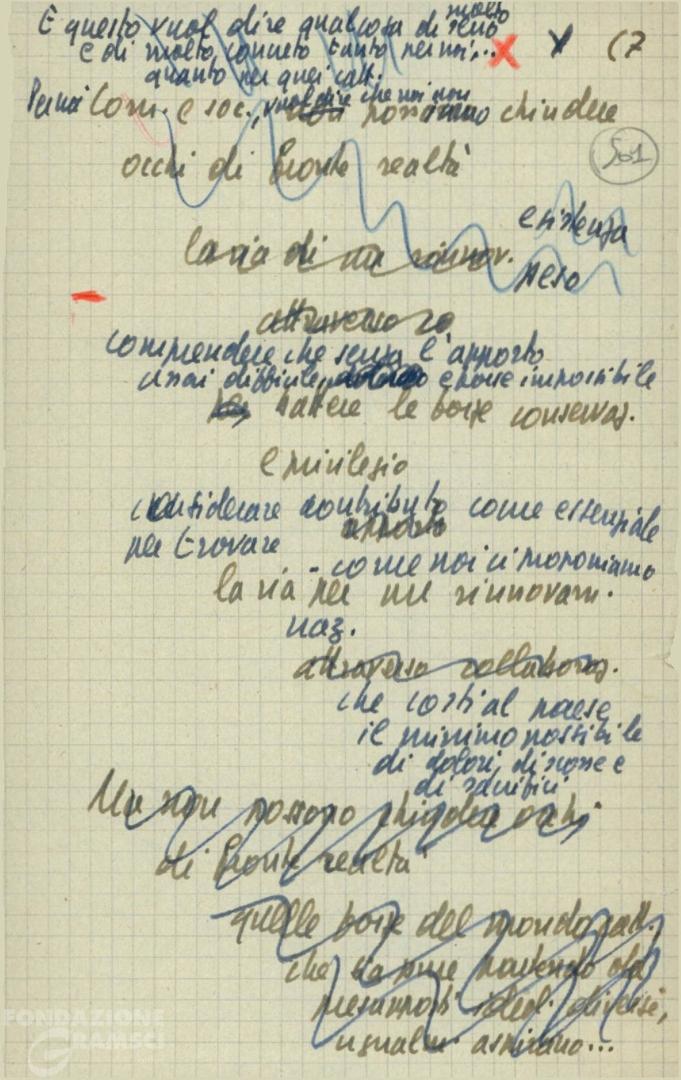 E questo vuol dire qualcosa di molto serio
e di molto concreto tanto per noi,...
quanto per quei catt.
(7
Per noi Com. e soc., vuol dire che noi non possiamo chiudere
561
occhi di fronte realtà
esistenza
la via di un rinnov.
peso
attraverso
comprendere che senza l'apporto
assai difficile, e forse impossibile
battere le forze conservaz.
e privilegio
considerare contributo come essenziale
apporto
per trovare - come noi ci proponiamo
la via per un rinnovam.
naz.
attraverso collaboraz.
che costi al paese
il minimo possibile
di dolori, di scosse e
di sacrifici
Ma non possono chiudere occhi
di fronte realtà
quelle forze del mondo catt.
che sia pure partendo da
presupposti ideol. diversi,
ugualm. aspirano...
FONDAZIONE
GRAMSCI